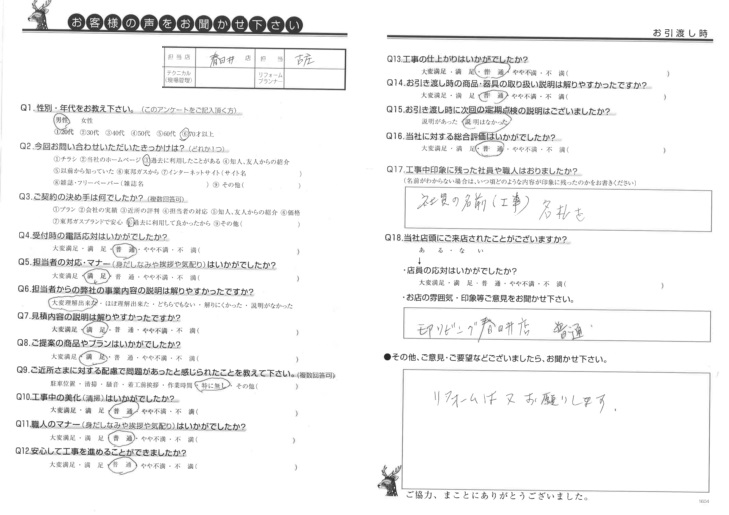 お客様の声をお聞かせ下さい
担当店 春日井 店 担当
テクニカル(現場管理) リフォームプランナー
Q1.性別・年代をお教え下さい。(このアンケートをご記入頂く方)
男性 女性
①20代 ②30代 ③40代 ④50代 ⑤60代 ⑥70才以上
Q2.今回お問い合わせいただいたきっかけは?(どれか1つ)
①チラシ ②当社のホームページ ③過去に利用したことがある ④知人、友人からの紹介
⑤以前から知っていた ⑥東邦ガスから ⑦インターネットサイト(サイト名 )
⑧雑誌・フリーペーパー(雑誌名 ) ⑨その他( )
Q3.ご契約の決め手は何でしたか?(複数回答可)
①プラン ②会社の実績 ③近所の評判 ④担当者の対応 ⑤知人、友人からの紹介 ⑥価格
⑦東邦ガスブランドで安心 ⑧過去に利用して良かったから ⑨その他( )
Q4.受付時の電話応対はいかがでしたか?
大変満足・満 足・普 通・やや不満・不 満( )
Q5.担当者の対応・マナー(身だしなみや挨拶や気配り)はいかがでしたか?
大変満足・満 足・普 通・やや不満・不 満( )
Q6.担当者からの弊社の事業内容の説明は解りやすかったですか?
大変理解出来た・ほぼ理解出来た・どちらでもない・解りにくかった・説明がなかった
Q7.見積内容の説明は解りやすかったですか?
大変満足・満 足・普 通・やや不満・不 満( )
Q8.ご提案の商品やプランはいかがでしたか?
大変満足・満 足・普 通・やや不満・不 満( )
Q9.ご近所さまに対する配慮で問題があったと感じられたことを教えて下さい。(複数回答可)
駐車位置・清掃・騒音・着工前挨拶・作業時間・特に無し・その他( )
Q10.工事中の美化(清掃)はいかがでしたか?
大変満足・満 足・普 通・やや不満・不 満( )
Q11.職人のマナー(身だしなみや挨拶や気配り)はいかがでしたか?
大変満足・満 足・普 通・やや不満・不 満( )
Q12.安心して工事を進めることができましたか?
大変満足・満 足・普 通・やや不満・不 満( )
お引渡し時
Q13.工事の仕上がりはいかがでしたか?
大変満足・満 足・普 通・やや不満・不 満( )
Q14.お引き渡し時の商品・器具の取り扱い説明は解りやすかったですか?
大変満足・満 足・普 通・やや不満・不 満( )
Q15.お引き渡し時に次回の定期点検の説明はございましたか?
説明があった・説明はなかった
Q16.当社に対する総合評価はいかがでしたか?
大変満足・満 足・普 通・やや不満・不 満( )
Q17.工事中印象に残った社員や職人はおりましたか?
(名前がわからない場合は、いつ頃どのような内容が印象に残ったのかをお書きください)
社員の名前(工事) 名札を
Q18.当社店頭にご来店されたことがございますか?
ある・ない
↓
・店員の応対はいかがでしたか?
大変満足・満 足・普 通・やや不満・不 満( )
・お店の雰囲気・印象等ご意見をお聞かせ下さい。
リビング春日井店 普通
●その他、ご意見・ご要望などございましたら、お聞かせ下さい。
リフォームは又お願いします。
ご協力、まことにありがとうございました。